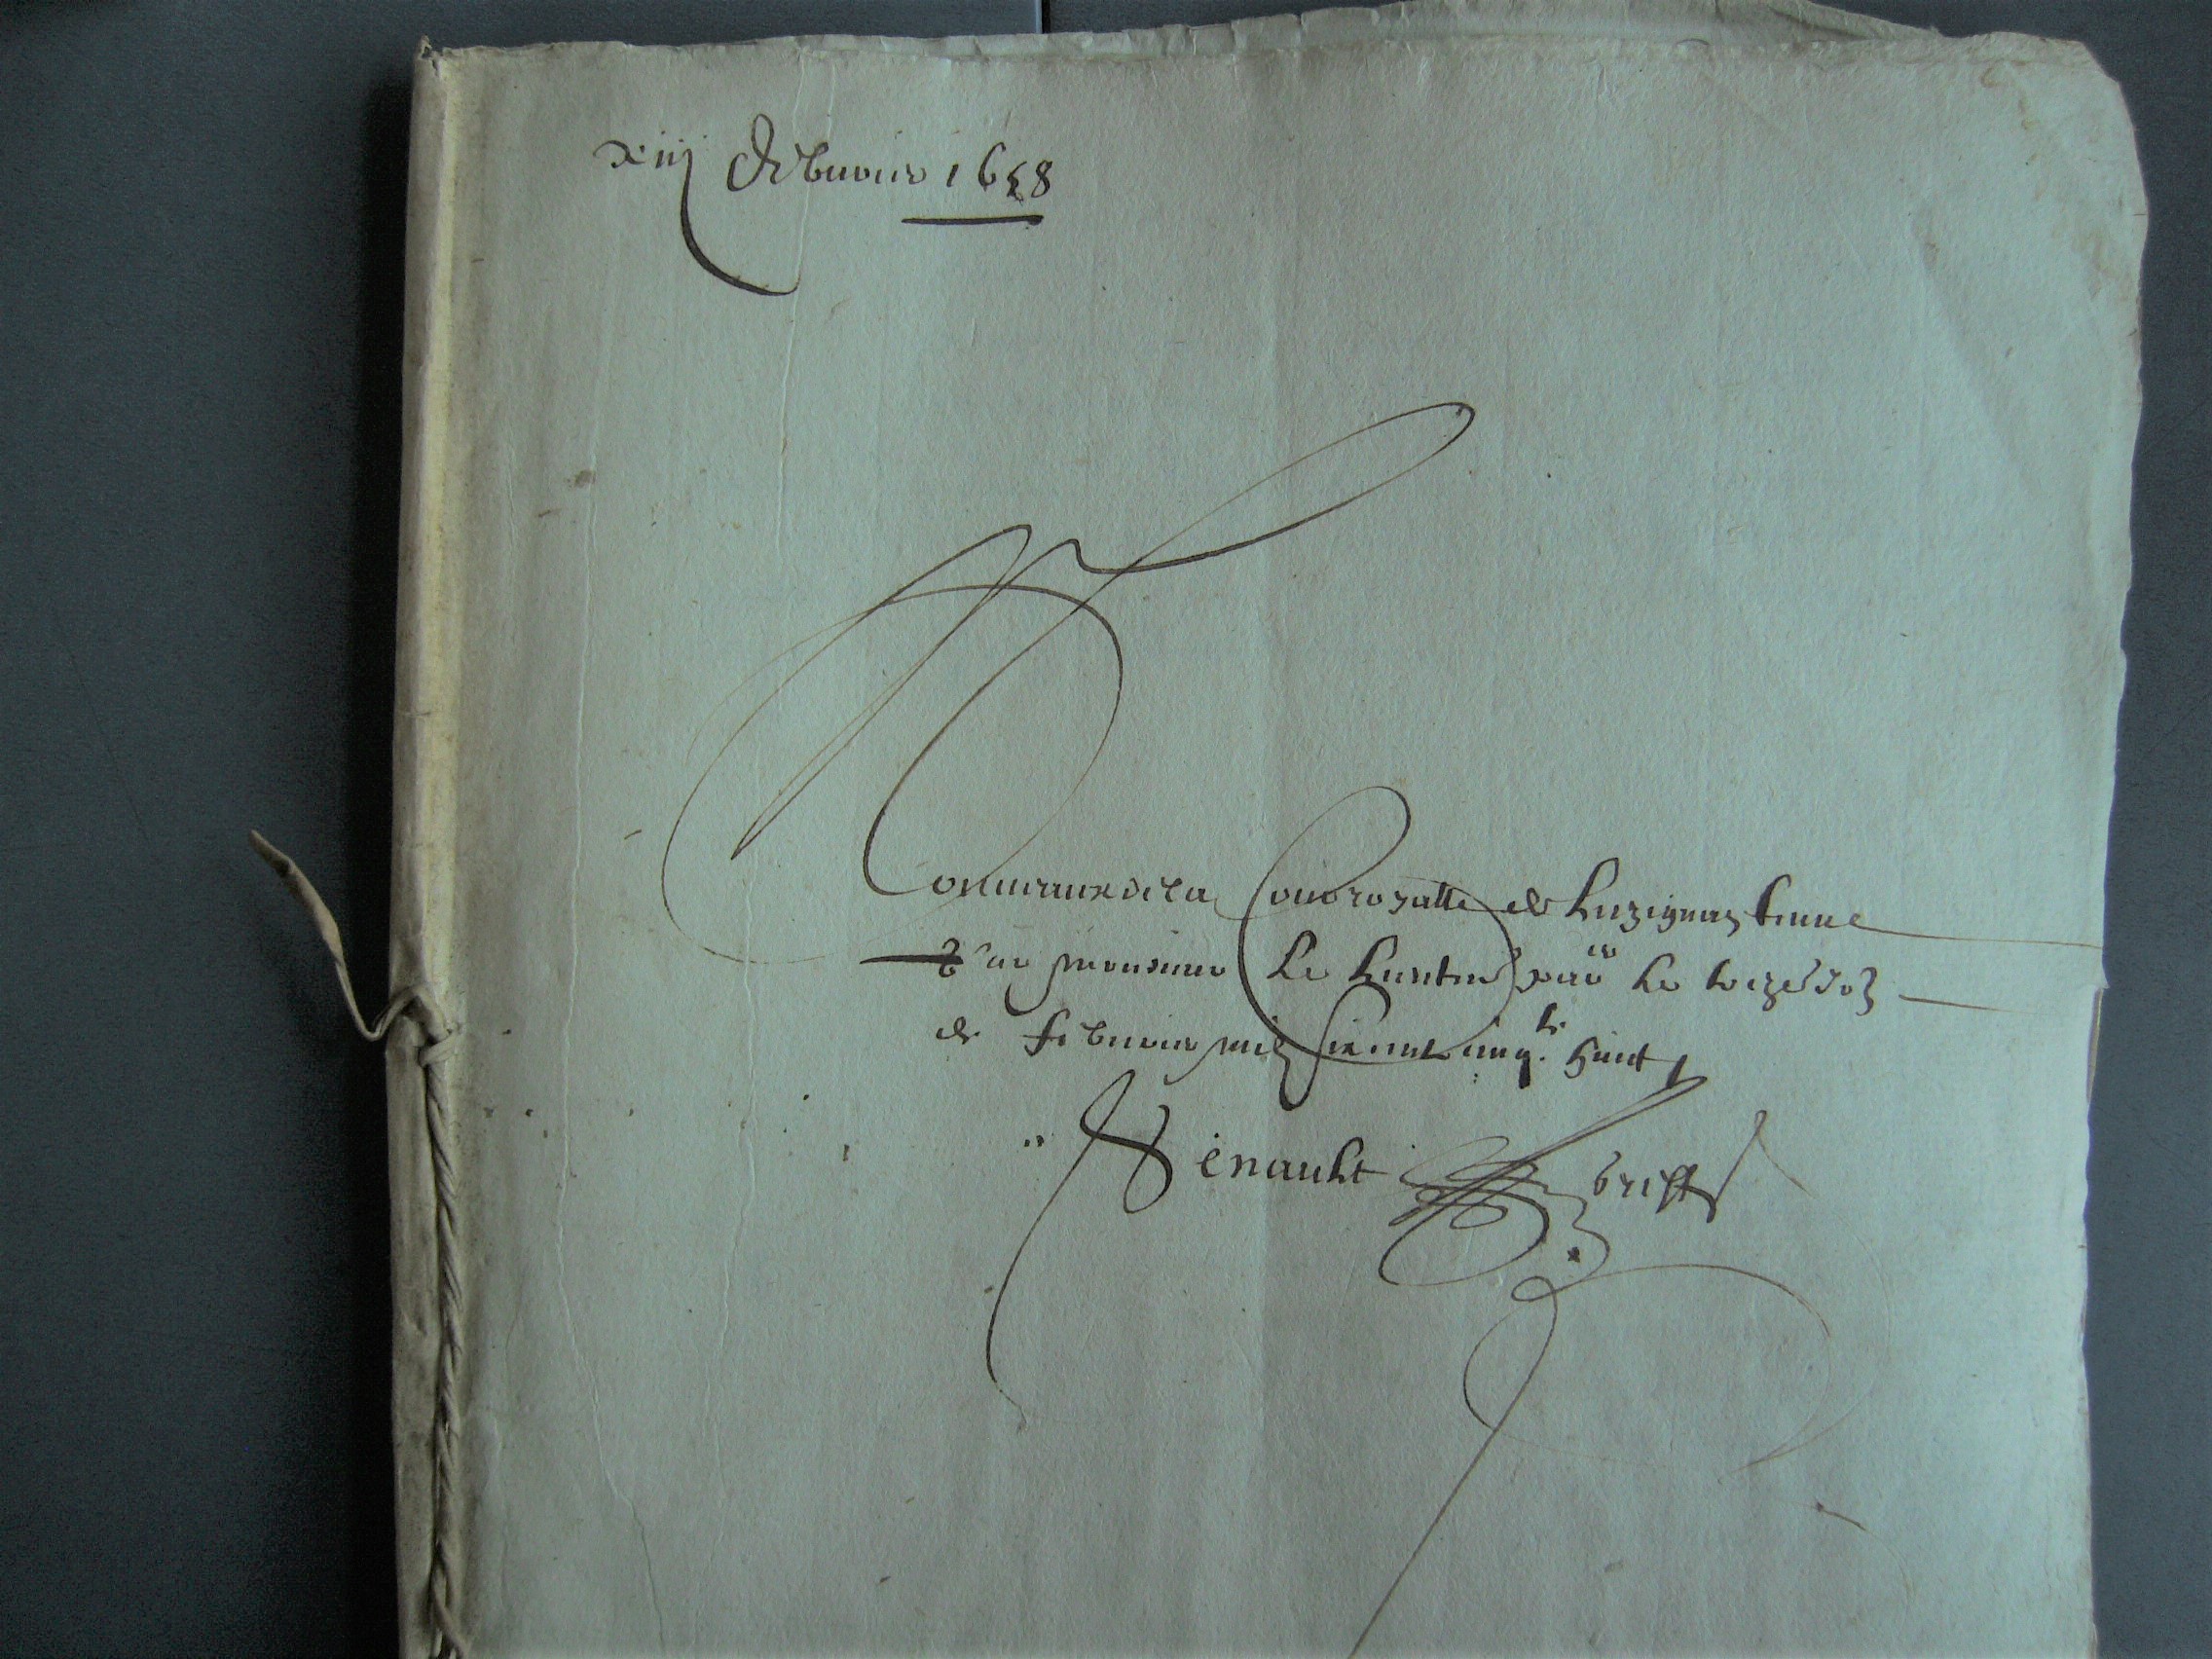 xiij febvrier 1658
Ordinaire de la Cour royalle de Luzignan tenue
par monsieur Le Lieuten par Le treze Jo
de febvrier mil six cent cinq. te huict
Henault greff